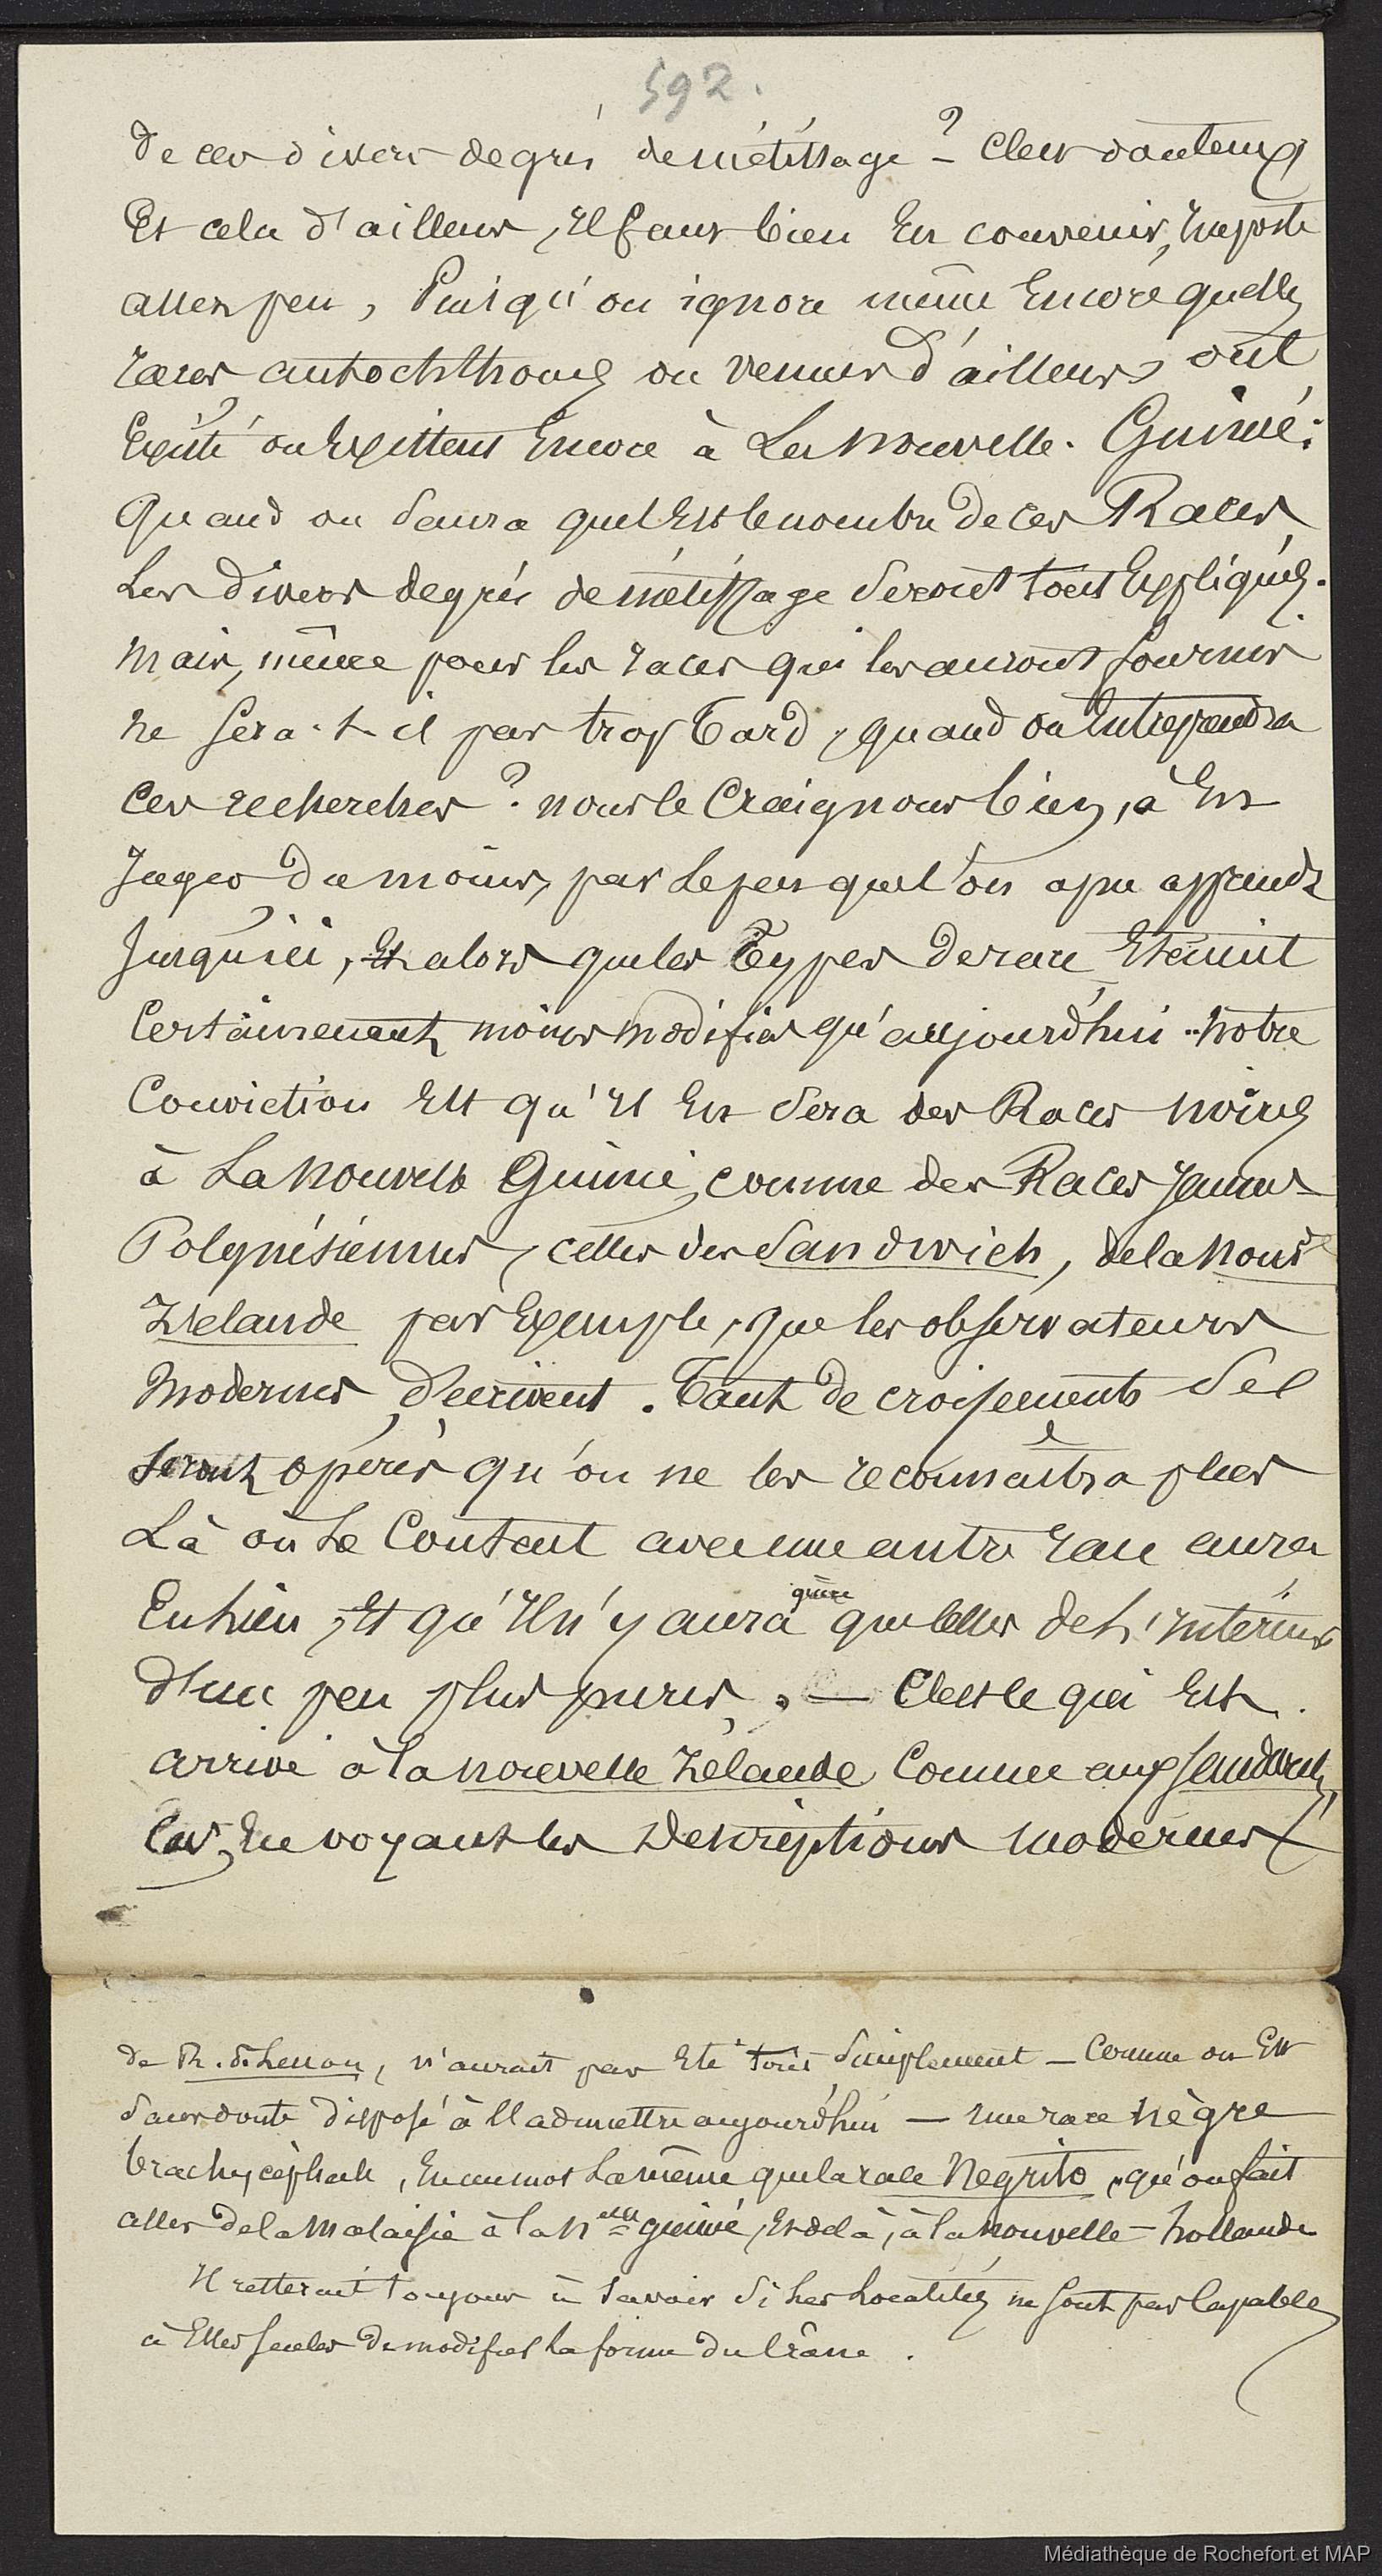 592.
de ces divers degrés de métissage ? – C'est douteux
Et cela d'ailleurs, il faut bien en convenir, importe
assez peu, Puisqu'on ignore même encore quelles
races autochthones ou venues d'ailleurs ont
Existé ou Existent Encore à La Nouvelle-Guinée :
Quand on saura quel est le nombre de ces Races
Les divers degrés de métissage seront tous Expliqués.
Mais, même pour les races qui les auront fournis
ne sera-t-il pas trop Tard, quand on Entreprendra
ces recherches ? nous le Craignons bien, à En
Juger du moins, par le peu que l'on a pu apprendre
Jusqu'ici, Et alors que les Types de race Etaient
Certainement moins modifiés qu'aujourd'hui. Notre
Conviction Est qu'il En sera des Races noires
à La Nouvelle Guinée, comme des Races Jaunes
Polynésiennes, celles des Sandwich, de la Nouv.
Zélande par Exemple, que les observateurs
Modernes décrivent. Tant de croisements se
seront opérés qu'on ne les reconnaitra plus
Là où Le Contact avec une autre race aura
Eu lieu, Et qu'il n'y aura guère que celles de l'intérieur
d'un peu plus pures. — C'est ce qui Est
arrivé à la nouvelle Zélande Comme aux Sandwich,
Car, En voyant les Descriptions modernes
de Th. de Lesson, n'aurait pas Eté tout simplement – Comme on Est
sans doute disposé à l'admettre aujourd'hui — une race nègre
brachycéphale, En un mot La même que la race Negrito, qu'on fait
aller de la Malaisie à la Nelle guinée, Et de là, à la nouvelle-hollande
Il resterait toujours à savoir si Les Localités ne sont pas Capables
à Elles seules de modifier la forme du Crâne.
Médiathèque de Rochefort et MAP